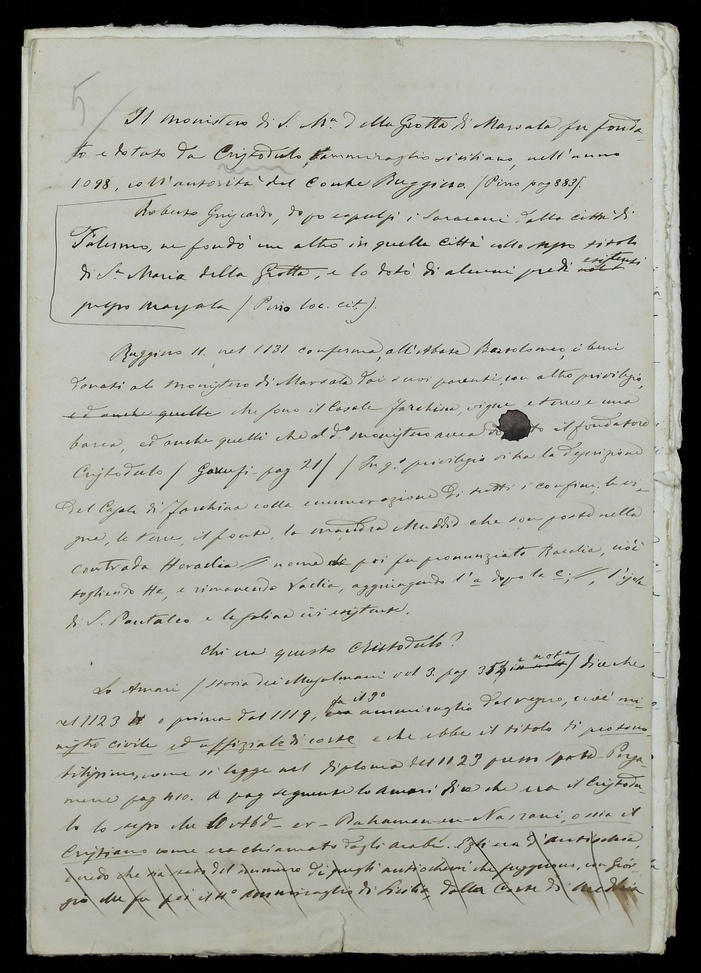 5
Il monistero di S. Mª della Grotta di Marsala fu fonda-
to e dotato da Cristodulo, ammiraglio siciliano, nell'anno
1098, coll'autorità del Conte Ruggiero. (Pirro pag 883).
Roberto Guiscardo, dopo espulsi i Saraceni dalla città di
Palermo, ne fondò un altro in quella Città collo stesso titolo
di Sª Maria della Grotta, e lo dotò di alcuni predi esistenti
presso Marsala (Pirro loc. cit.).
Ruggiero II. nel 1131 conferma all'Abate Bartolomeo, i beni
donati al monistero di Marsala dai suoi parenti, con altro privilegio,
ed anche quelle che sono il Casale Farchina, vigne e terre e una
barca, ed anche quelli che al dº monistero avea il fondatore
Cristodulo / Garufi pag 21/ / In qº privilegio si ha la descrizione
del Casale di Farchina colla enumerazione di tutti i confini, le vi-
gne, le terre, il fonte, la mandra Muddid che son poste nella
contrada Heraclia // nome che poi fu pronunziato Raclia, cioè
togliendo He, e rimanendo raclia, aggiungendo l'a dopo la c; //, l'isola
di S. Pantaleo e le saline ivi esistente.
Chi era questo Cristodulo?
Lo Amari / Storia dei Musulmani vol 3. pag 354 in nota a nota / dice che
nel 1123 o prima del 1119, era fu il 1º ammiraglio del regno, cioè mi-
nistro civile ed uffiziale di corte e che ebbe il titolo di protono-
bilissimo, come si legge nel diploma del 1123 presso Spata Perga-
mene pag 410. A pag seguente lo Amari dice che era il Cristodu-
lo lo stesso che Abd-er-Rahaman-en-Nassrani, o sia il
Cristiano come era chiamato dagli arabi. Egli era d'antiochia,
credo che sia stato del numero di quegli antiocheni che fuggirono, con Gior-
gio che fu poi il 2º ammiraglio di Sicilia, dalla Corte di Mehdia